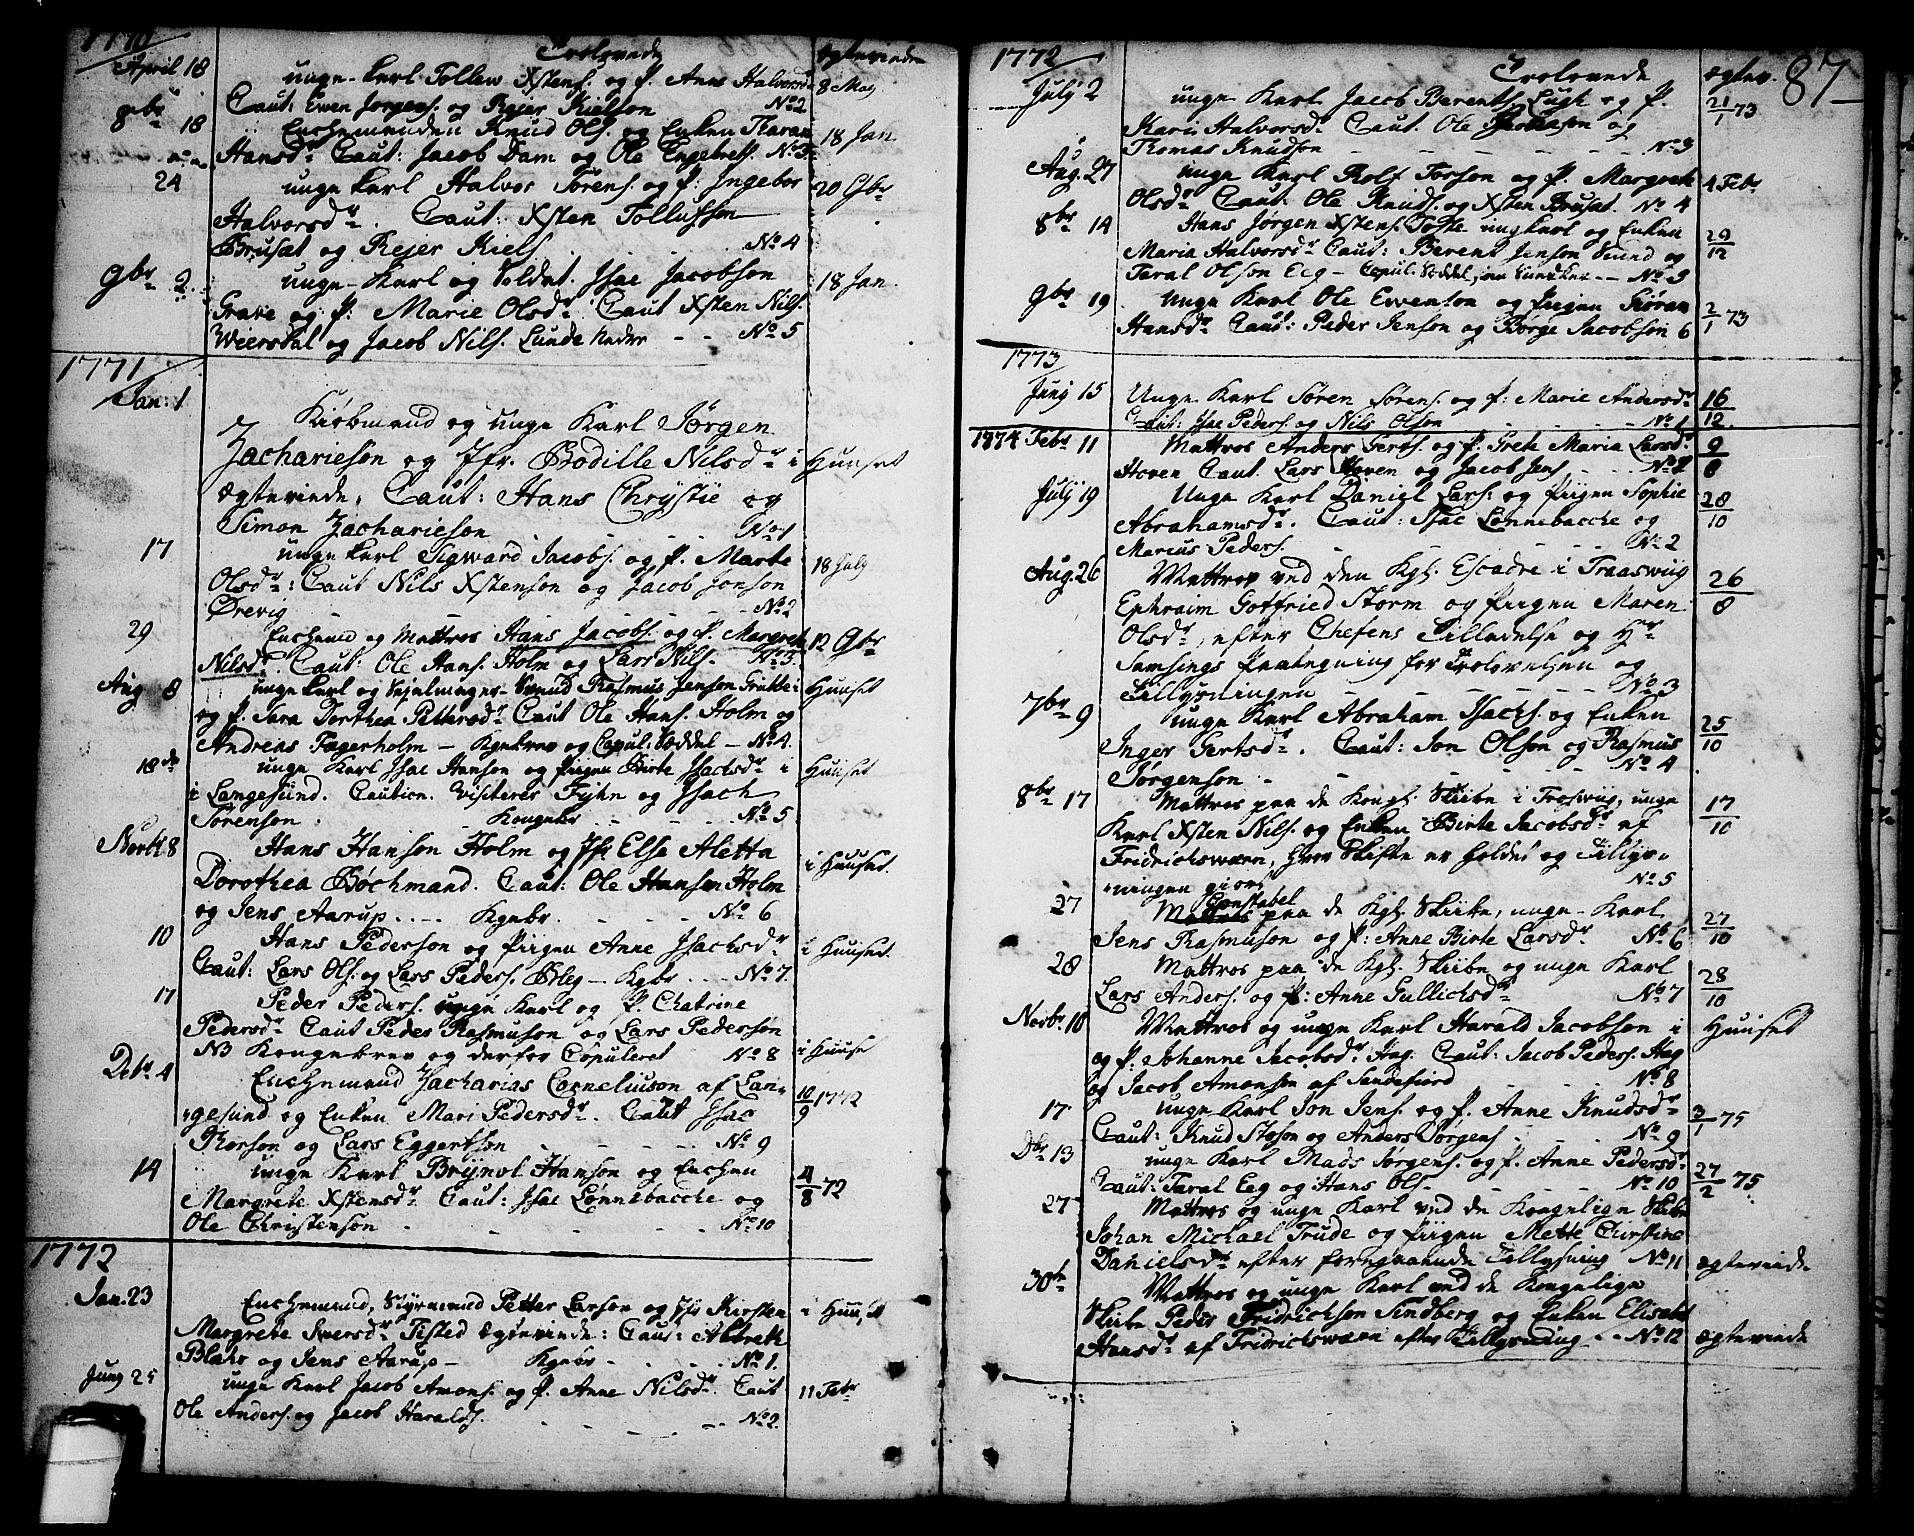 1770
Trolovede
Ægteviede
April 18
unge Karl Tollew Xstens. og P. Anne Halvorsdr
8 May
Caut: Ewen Jørgens. og Rejer Kielson No 2
8br 18
Enchemanden Knud Ols. og Enken Karan
18 Jan
Hansdr Caut: Jacob Dam og Ole Engebrets. No 3
24
unge Karl Halvor Sørens. og P: Ingebor
20 9br
Halvorsdr. Caut: Xsten Tollufson
Brusæt og Rejer Kiels. No 4
9br 2
unge Karl og Soldat Isac Jacobson
18 Jan.
Grave og P: Marie Olsdr. Caut Xsten Nils.
Weiersdal og Jacob Nils. Lunde neder No 5
1771
Jan: 1
Kiøbmand og unge Karl Jørgen
Zacharieson og Jfr. Bodille Nilsdr i Huuset
Ægteviede, Caut: Hans Chrystie og
Simon Zacharieson No 1
17
unge Karl Sigward Jacobs. og P. Marte
18 July
Olsdr: Caut Nils Xstenson og Jacob Jonson
Ørevig No 2
29
Enchemd og Mattros Hans Jacobs. og P. Margrete
12 9br
Nilsdr. Caut: Ole Hans. Holm og Lars Nils. No 3
Aug 8
unge Karl og Sejelmager Svend Rasmus Jenson Grutte i
Huuset
og P. Sara Dorthea Pettersdr Caut Ole Hans. Holm og
Andreas Fagerholm - Kgebrev og Copul: Seddel - No 4.
18 de
unge Karl Isac Hanson og Piigen Birte Isachsdr i
Huuset
i Langesund. Caution. Visiterer Fyhn og Isach
Sørenson. Kongebr No 5
Novbr 8
Hans Hanson Holm og Jfr Else Aletta
i Huuset.
Dorothea Bøchmand. Caut: Ole Hansen Holm
og Jens Aarup.... Kgebr. No 6
10
Hans Pederson og Piigen Anne Isachsdr
i Huuset.
Caut: Lars Ols. og Lars Peders. Bleg - Kgbr No 7.
17
Peder Peders. unge Karl og P. Chatrine
Pedersdr Caut Peder Rasmuson og Lars Pederson
NB Kongebrev og derfor Copuleret No 8
i Huuse
Debr 4
Enchemand Zacharias Corneliuson af Lan-
10/9 1772
gesund og Enken Mari Pedersdr. Caut Isac
Thorson og Lars Eggertson No 9
14
unge Karl Brynol Hanson og Enchen
4/8 72
Margrete Xstensdr Caut: Isac Lønnebacche og
Ole Christenson No 10
1772
Jan. 23
Enchemand, Styrmand Petter Larson og Jfr Kirsten
i Huuset
Margrete Iversdr Tisted Ægteviede: Caut: Albreth
Blahr og Jens Aarup - Kgebr No 1.
Juny 25
unge Karl Jacob Amons. og P. Anne Nilsdr. Caut
11 Febr
Ole Anders. og Jacob Haralds. No 2
87
1772
Trolovede
Ægtev.
July 2
unge Karl Jacob Berents. Lugh og P.
21/1 73
Kari Halvorsdr Caut. Ole Jacobson og
Thomas Knudson No 3
Aug. 27
unge Karl Rolf Torson og P. Margrete
4 Febr
Olsdr Caut. Ole Knuds. og Xsten Brusæt. No 4
8br 14
Hans Jørgen Xstens. Tofte ungkarl og Enken
29/12
Maria Halvorsdr Caut: Berent Jenson Suund og
Taral Olson Eeg - Copul. Seddel No 5
9br 19
unge Karl Ole Ewenson og Piigen Siøran
2/1 73
Hansdr Caut: Peder Jenson og Børge Jacobson 6
1773
Juny 15
Unge Karl Søren Sørens. og P: Marie Andersdr
16/12
Caut: Isac Peders. og Nils Olson No 1
1774 Febr 11
Mattros Anders Gerts. og P. Grete Maria Larsdr
9/8
Hoven Caut. Lars Hoven og Jacob Jens No 1
July 19
Unge Karl Daniel Lars. og Piigen Sophie
28/10
Abrahamsdr. Caut: Isac Lønnebacche og
Marcus Peders. No 2
Aug. 26
Mattros ved den Kgl. Escadre i Traaswiig
26/8
Ephraim Gotfried Storm og Piigen Maren
Olsdr, efter Chefens Tilladelse og Hr
Samsings Paategning for Trolovelsen og
Tillysningen No 3
7br 9
unge Karl Abraham Isachs. og Enken
25/10
Inger Gertsdr. Caut: Jon Olson og Rasmus
Jørgenson No 4
8br 17
Mattros paa de Kongl. Skibe i Troswiig, unge
17/10
Karl Xsten Nils. og Enken Birte Jacobsdr af
Fridrichswærn, hvor Skifte er holdet og Tillys-
ningen giort No 5
27
Constabel
Mattros paa de Kgl. Skibe, unge Karl
27/10
Jens Rasmuson og P: Anne Birte Larsdr No 6
28
Mattros paa de Kgl. Skibe og unge Karl
28/10
Lars Anders. og P: Anne Gullichsdr No 7
Novbr 10
Mattros og unge Karl Harald Jacobson i
Huuset
og P. Johanne Jacobsdr Hag. Caut: Jacob Peders. Hag
og Jacob Amonson af Sandefiord No 8
17
unge Karl Jon Jens. og P. Anne Knudsdr
3/1 75
Caut: Knud Stoson og Anders Jørgens No 9
Dbr 13
unge Karl Mads Jørgens. og P. Anne Pedersdr
27/2 75
Caut: Taral Eeg og Hans Ols No 10
27
Mattros og unge Karl ved de Kongelige Skibe
Johan Michael Trude og Piigen Mette Cirstine
Danielsdr efter foregaaende Tillysning No 11
Ægteviede
30te
Mattros og unge Karl ved de Kongelige
Skibe Peder Fridrichson Tindberg og Enken Elisabt
Hansdr af Fridrichswærn efter Tillysning - - No 12
Ægteviede